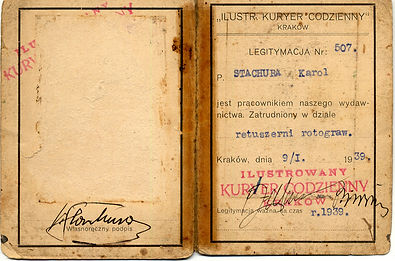 ILU
KURYER C
Własnoręczny podpis
„ILUSTR. KURYER CODZIENNY"
KRAKÓW
LEGITYMACJA Nr. 507.
P. STACHURA Karol
jest pracownikiem naszego wydaw-
nictwa. Zatrudniony w dziale
retuszerni rotograw.
Kraków, dnia 9/I. 1939.
ILUSTROWANY
KURYER CODZIENNY
KRAKÓW
Legitymacja ważna na czas r.1939.